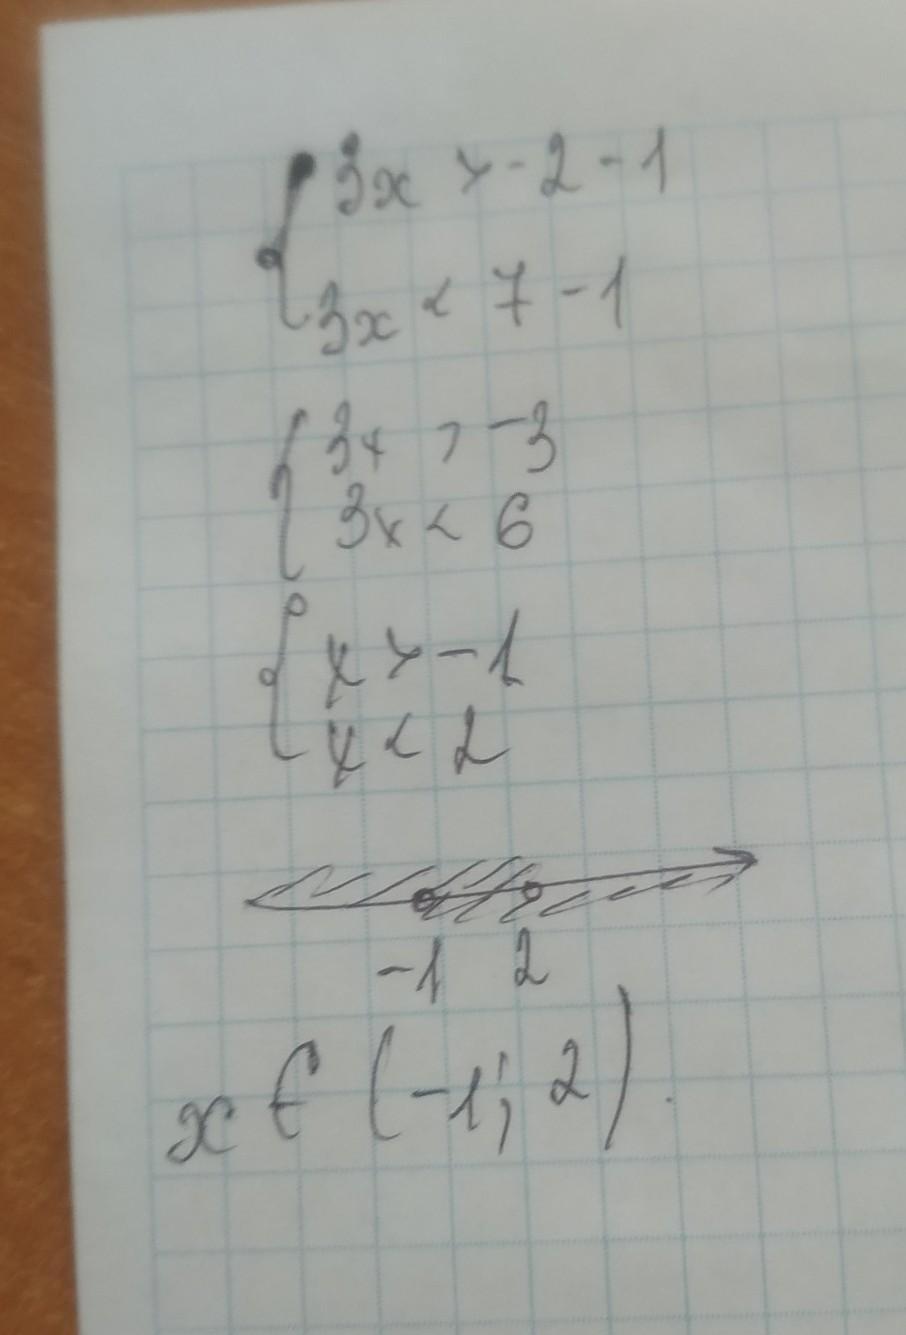 3x > -2 - 1
3x < 7 - 1
3x > -3
3x < 6
x > -1
x < 2
-1 2
x ∈ (-1; 2).